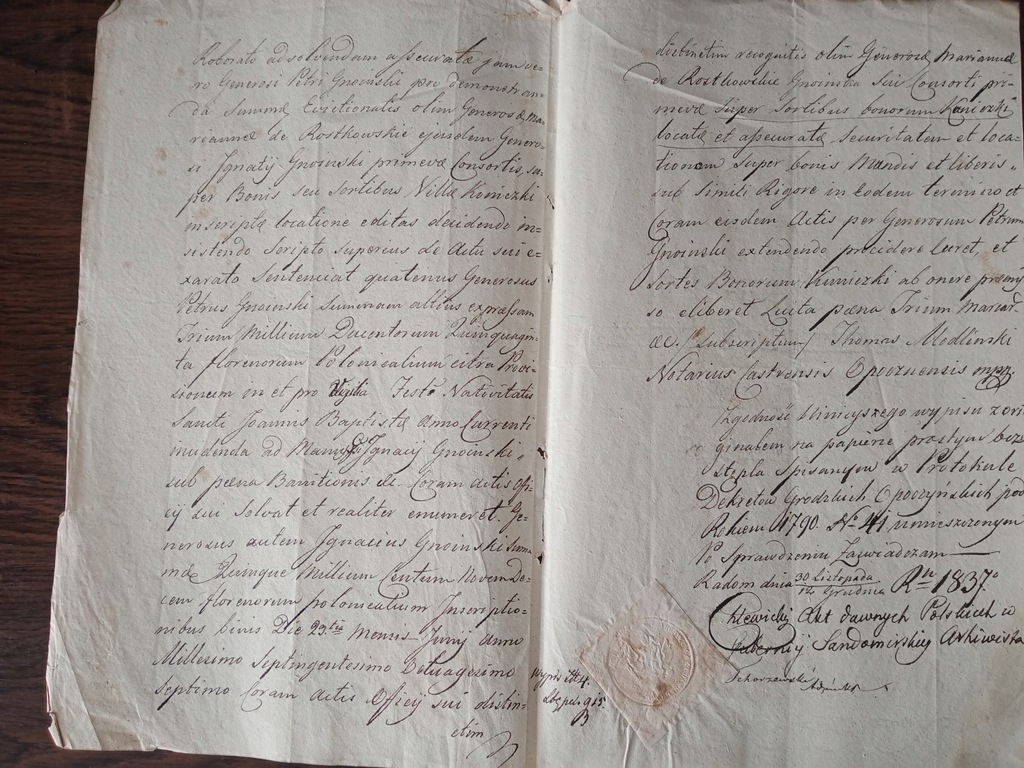 Roborato ad solvendam assecuratæ jam ve-
ro Generosi Petri Gnoinskii pro demonstran-
da Summæ Evictionalis olim Generosæ Ma-
reannæ de Rostkowskie ejusdem Genero-
si Ignatij Gnoinski primevæ Consortis, su-
per Bonis seu Sortibus Villæ Kuniczki
inscriptæ locatione editas decidendo in-
sistendo Scripto Superius de Actu sui e-
xarato Sentenciat quatenus Generosus
Petrus Gnoinski Summam altius expressam
Trium Millium Ducentorum Quinquagin-
ta florenorum Polonicalium citra Provi-
sionem in et pro Vigilia Festi Nativitatis
Sancti Joannis Baptistæ Anno Currenti
incidenda ad Manus Ignacij Gnoinski,
sub pæna Bannitionis &c. Coram actis Offi-
cij sui Solvat et realiter enumeret. Ge-
nerosus autem Ignacius Gnoinski Sum-
mæ Quinque Millium Centum Novem De-
cem florenorum polonicalium Inscriptio-
nibus binis Die 23tia Mensis Junij Anno
Millesimo Septingentesimo Octuagesimo
Septimo Coram actis Officij sui distin-
ctim
distinctim recognitis olim Generosæ Mariannæ
de Rostkowskie Gnoinska Sui Consorti pri-
mevæ Super Sortibus bonorum Kuniczki
locatæ et assecuratæ Securitatem et loca-
tionem Super bonis Mandis et liberis,
sub Simili Rigore in eodem termino et
Coram eisdem Actis per Generosum Petrum
Gnoinski extendendo procidere curet, et
Sortes Bonorum Kuniczki ab onere præmis-
so eliberet Luita pæna Trium Marcar.
&c. /Subscriptum/ Thomas Modlinski
Notarius Castrensis Opocznensis mpp.
Zgodność Niniejszego wypisu z ori-
ginałem na papierze prostym bez
stępla Spisanym w Protokule
Dekretow Grodzkich Opoczyńskich pod
Rokiem 1790. No 41 umieszczonym
Po Sprawdzeniu Zaświadczam
Radom dnia 30 Listopada / 12 Grudnia Rku 1837.
Chlewicki Akt dawnych Polskich w
Gubernij Sandomirskiey Arhiwista
Wypis Zł 4.